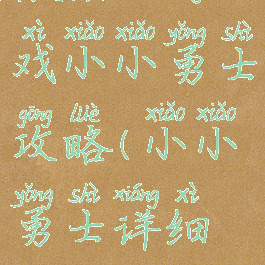 xì xiǎo xiǎo yǒng shì
戏小小勇士
gōng lüè xiǎo xiǎo
攻略(小小
yǒng shì xiáng xì
勇士详细